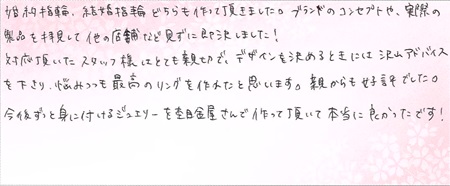 婚約指輪、結婚指輪どちらも作って頂きました。ブランドのコンセプトや、実際の
製品を拝見して他の店舗など見ずに即決しました！
対応頂いたスタッフ様はとても親切で、デザインを決めるときには沢山アドバイス
を下さり、悩みつつも最高のリングを作れたと思います。親からも好評でした。
今後ずっと身に付けるジュエリーを杢目金屋さんで作って頂いて本当に良かったです！